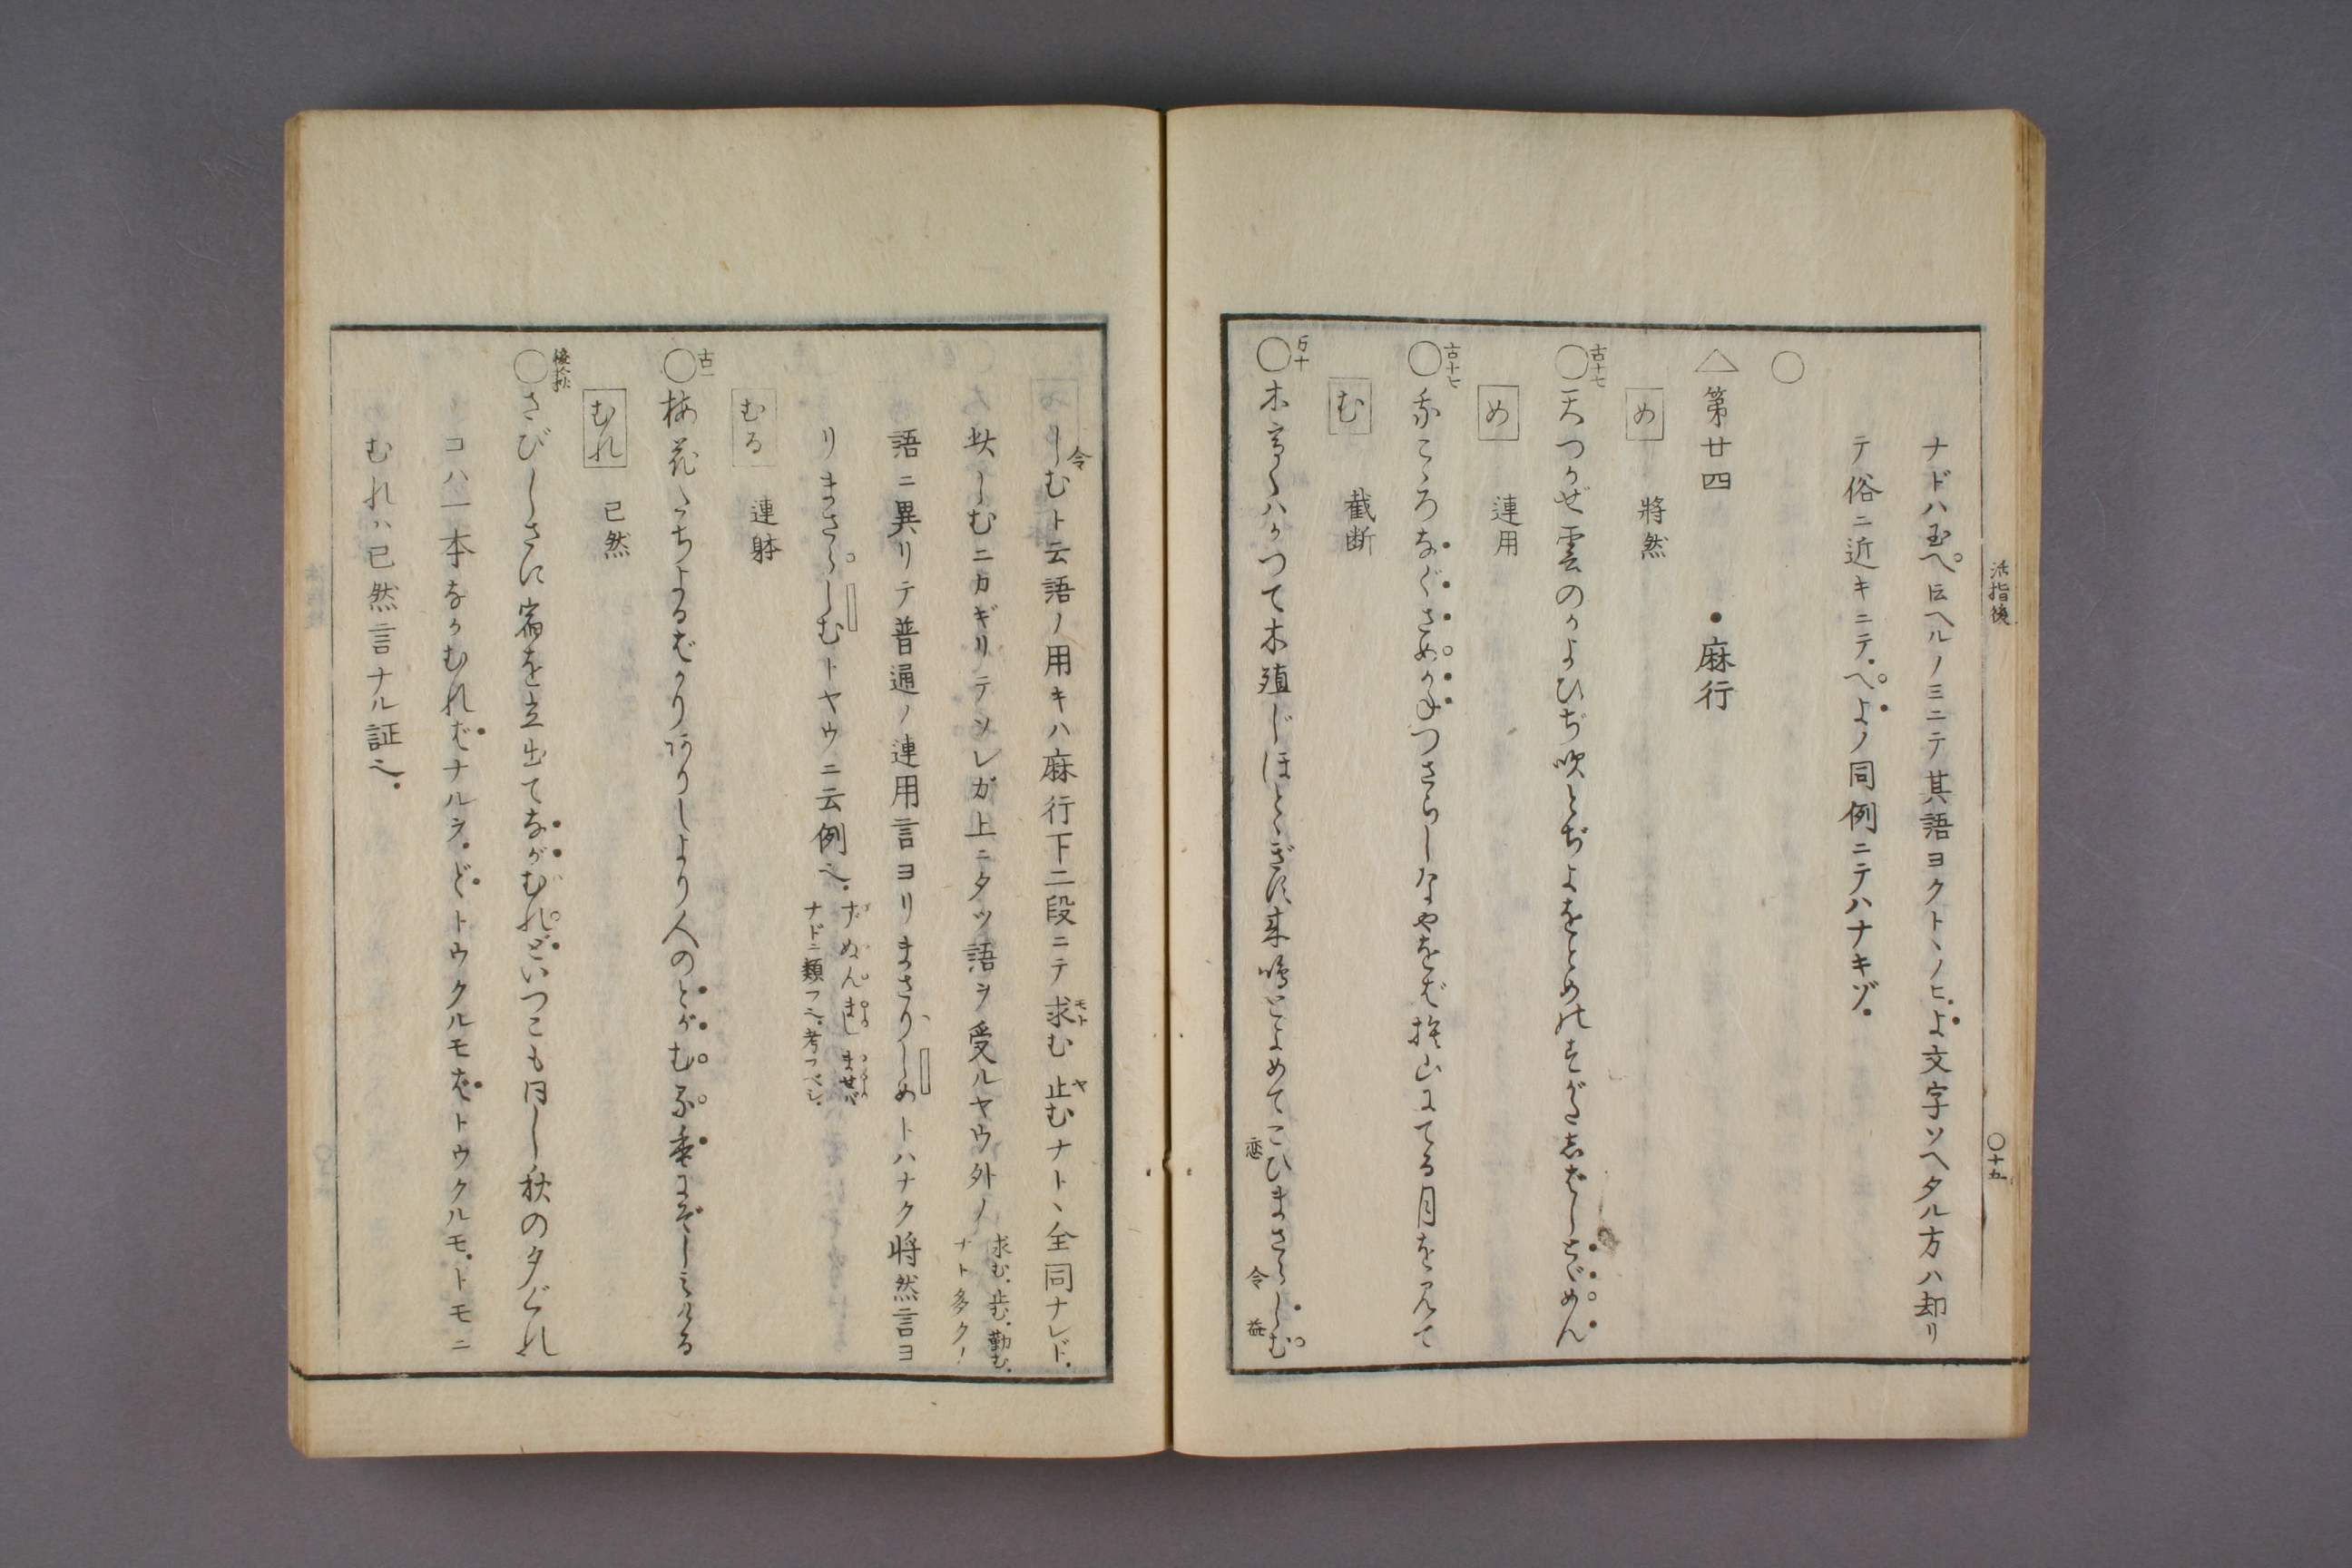 活指後
〇十九
ナドハ玉へ㠯ヘルノミニテ其語ヨクトヽノヒ.よ文字ソヘタル方ハ却リ
テ俗ニ近キニテ.へよノ同例ニテハナキゾ.
〇
△第廿四 ・麻行
め 將然
〇古十七 天つかぜ雲のかよひぢ吹とぢよをとめのすがたしばしとゞめん
め 連用
〇古十七 我こゝろなぐさめかねつさらしなやをば捨山にてる月をみて
む 截断
〇万十 木高くハかつて木殖じほとゝぎす来鳴とよめてこひまさらしむ
恋 令 益
令 しむト云語ノ用キハ麻行下二段ニテ求む 止むナトヽ全同ナレド.
モト ヤ
此しむニカギリテソレガ上ニタツ語ヲ受ルヤウ外ノ
求む.止む.勤む.
ナト多ク
語ニ異リテ普通ノ連用言ヨリまさりしめトハナク將然言ヨ
リまさらしむトヤウニ云例也.
ず ぬ ん まし ませば
ナドニ類フ也.考フベシ.
むる 連躰
〇古一 梅花たちよるばかりありしより人のとがむる香にぞしみける
むれ 已然
〇後拾秋 さびしさに宿を立出てながむれどいつこも同し秋の夕ぐれ
コハ一本ながむればナルヲ.どトウクルモばトウクルモ.トモニ
むれハ已然言ナル証也.